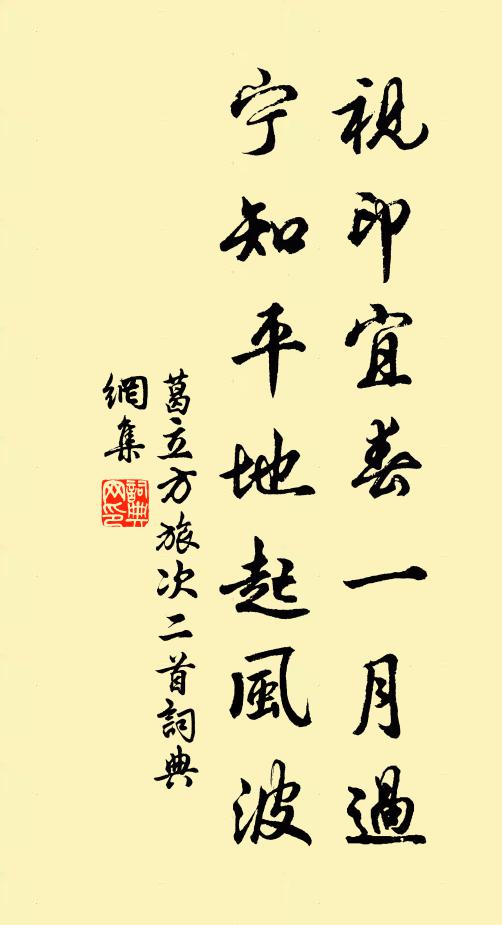 視印宜春一月過
宁知平地起風波
葛立方旅次二首詞典
網集
詞典
网印